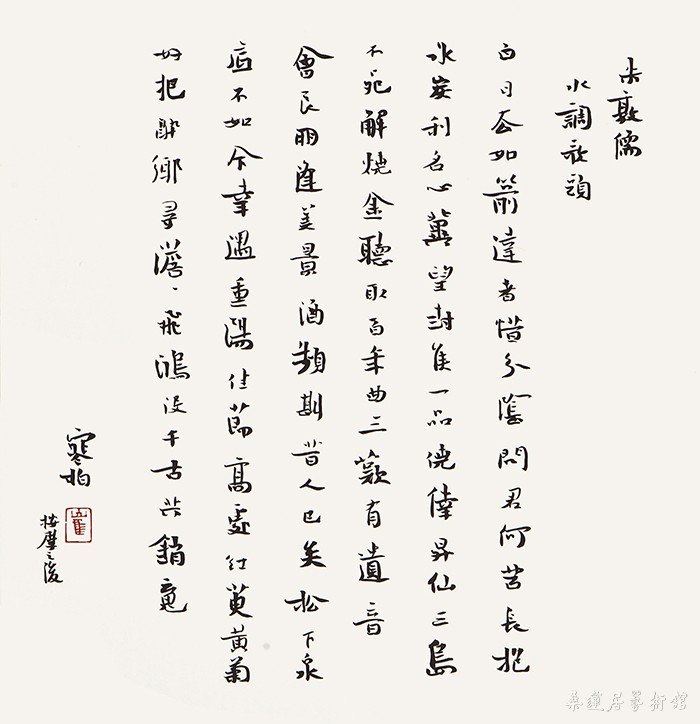 朱敦儒
水調歌頭
白日去如箭達者惜分陰問君何苦長抱
冰炭利名心冀望封侯一品僥倖昇仙三島
不死解燒金聽取百年曲三歎有遺音
會良朋逢美景酒頻斟昔人已矣松下泉
底不如今幸遇重陽佳節高處紅萸黃菊
好把醉鄉尋澹々飛鴻沒千古共銷魂
寒柏
崔
蓮居藝術館